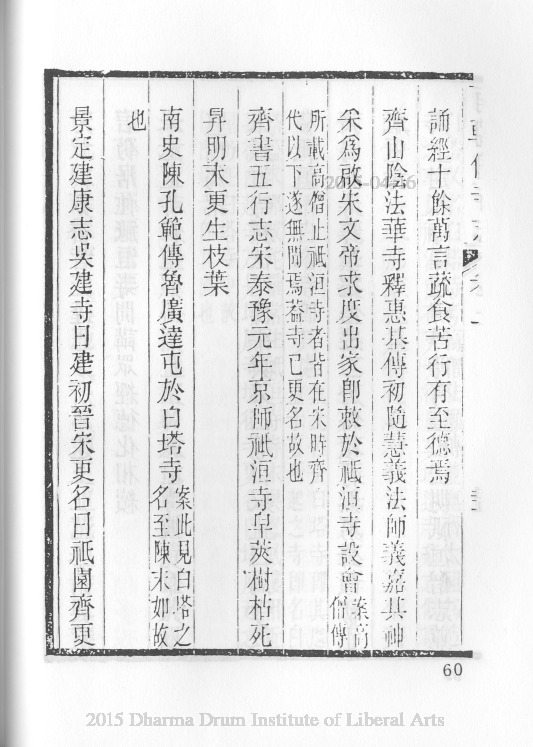 誦經十餘萬言蔬食苦行有至德焉
齊山陰法華寺釋惠基傳初隨慧義法師義嘉其神
采爲啟宋文帝求度出家卽敕於祇洹寺設會案高僧傳
所載高僧止祇洹寺者皆在宋時齊
代以下遂無聞焉葢寺已更名故也
齊書五行志宋泰豫元年京師祇洹寺皁莢樹枯死
昇明末更生枝葉
南史陳孔範傳魯廣達屯於白塔寺案此見白塔之名至陳末如故
也
景定建康志吳建寺曰建初晉宋更名曰祇園齊更
60
2015 Dharma Drum Institute of Liberal Arts